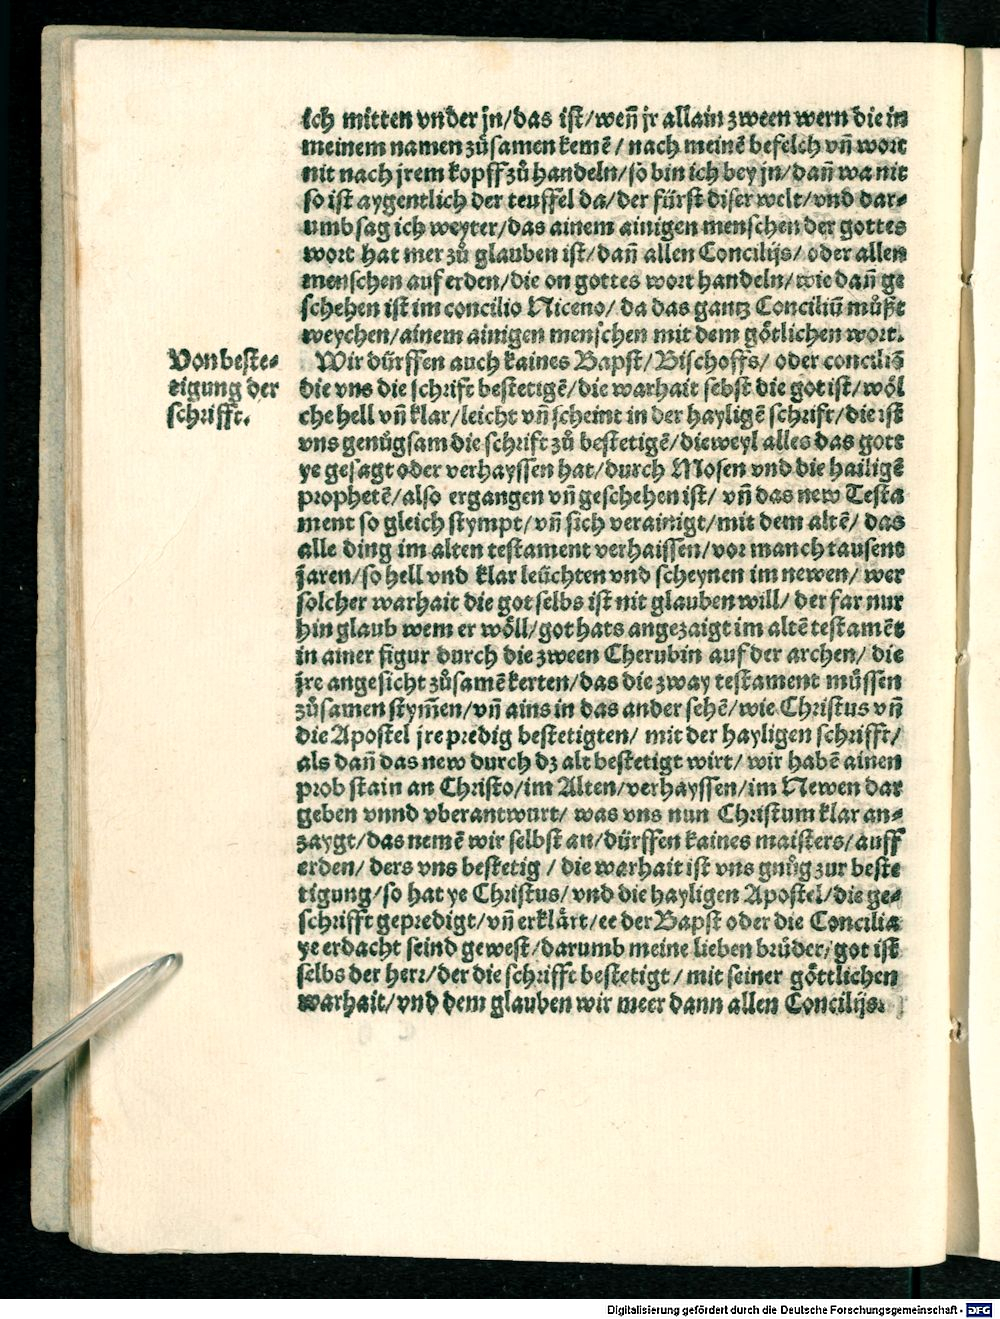 ich mitten vnder jn/das ist/weñ jr allain zween wern die in
meinem namen zůsamen kemē/ nach meinē befelch vñ wort
nit nach jrem kopff zů handeln/so bin ich bey jn/dañ wa nit
so ist aygentlich der teuffel da/der fürst diser welt/vnd dar⸗
umb sag ich weyter/das ainem ainigen menschen der gottes
wort hat mer zů glauben ist/dañ allen Concilijs/oder allen
menschen auf erden/die on gottes wort handeln/wie dañ ge
schehen ist im concilio Niceno/da das gantz Conciliū můßt
weychen/ainem ainigen menschen mit dem götlichen wort.
Von beste⸗
tigung der
schrifft.
Wir dürffen auch kaines Bapst/Bischoffs/ oder conciliū
die vns die schrift bestetigē/die warhait sebst die got ist/wöl
che hell vñ klar/leicht vñ scheint in der hayligē schrift/die ist
vns genůgsam die schrift zů bestetigē/dieweyl alles das gott
ye gesagt oder verhayssen hat/durch Mosen vnd die hailigē
prophetē/also ergangen vñ geschehen ist/ vñ das new Testa
ment so gleich stympt/vñ sich verainigt/mit dem altē/ das
alle ding im alten testament verhaissen/vor manch tausent
jaren/so hell vnd klar leüchten vnd scheynen im newen/ wer
solcher warhait die got selbs ist nit glauben will/ der far nur
hin glaub wem er wöll/got hats angezaigt im altē testamēt
in ainer figur durch die zween Cherubin auf der archen/ die
jre angesicht zůsamē kerten/das die zway testament müssen
zůsamen stym̄en/vñ ains in das ander sehē/wie Christus vñ
die Apostel jre predig bestetigten/ mit der hayligen schrifft/
als dañ das new durch dz alt bestetigt wirt/ wir habē ainen
prob stain an Christo/im Alten/verhayssen/im Newen dar
geben vnnd vberantwurt/ was vns nun Christum klar an⸗
zaygt/das nemē wir selbst an/dürffen kaines maisters/auff
erden/ ders vns bestetig / die warhait ist vns gnůg zur beste
tigung/so hat ye Christus/vnd die hayligen Apostel/die ge⸗
schrifft gepredigt/vñ erklärt/ee der Bapst oder die Concilia
ye erdacht seind gewest/darumb meine lieben brüder/got ist
selbs der herr/der die schrifft bestetigt/mit seiner göttlichen
warhait/vnd dem glauben wir meer dann allen Concilijs.
Digitalisierung gefördert durch die Deutsche Forschungsgemeinschaft - DFG